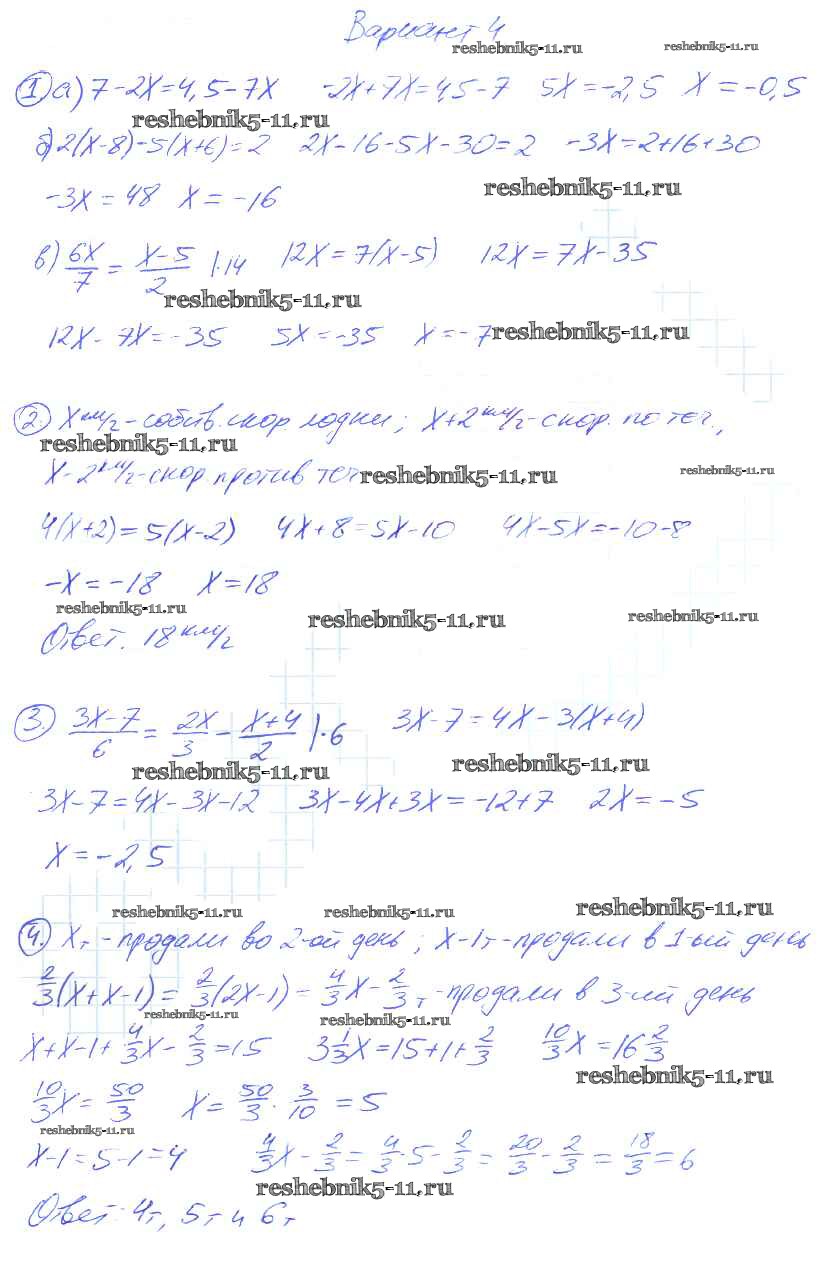 Вариант 4
reshebnik5-11.ru reshebnik5-11.ru
1 а) 7-2x=4,5-7x -2x+7x=4,5-7 5x=-2,5 x=-0,5
reshebnik5-11.ru
б) 2(x-8)-5(x+6)=2 2x-16-5x-30=2 -3x=2+16+30
reshebnik5-11.ru
-3x=48 x=-16
в) 6x/7 = x-5/2 |·14 12x=7(x-5) 12x=7x-35
reshebnik5-11.ru
12x-7x=-35 5x=-35 x=-7
reshebnik5-11.ru
2. x км/г - собств. скор лодки; x+2 км/г - скор. по теч.,
reshebnik5-11.ru
x-2 км/г - скор против теч
reshebnik5-11.ru reshebnik5-11.ru
4(x+2)=5(x-2) 4x+8=5x-10 4x-5x=-10-8
-x=-18 x=18
reshebnik5-11.ru reshebnik5-11.ru reshebnik5-11.ru
Ответ. 18 км/г
3. 3x-7/6 = 2x/3 - x+4/2 |·6 3x-7=4x-3(x+4)
reshebnik5-11.ru reshebnik5-11.ru
3x-7=4x-3x-12 3x-4x+3x=-12+7 2x=-5
x=-2,5
reshebnik5-11.ru reshebnik5-11.ru reshebnik5-11.ru
4. xт - продали во 2-ой день; x-1т - продали в 1-ый день
2/3(x+x-1)=2/3(2x-1)=4/3x-2/3т - продали в 3-ий день
reshebnik5-11.ru reshebnik5-11.ru
x+x-1+4/3x-2/3=15 3 1/3x=15+1+2/3 10/3x=16 2/3
reshebnik5-11.ru
10/3x=50/3 x=50/3·3/10=5
reshebnik5-11.ru
x-1=5-1=4 4/3x-2/3=4/3·5-2/3=20/3-2/3=18/3=6
reshebnik5-11.ru
Ответ: 4т, 5т и 6т